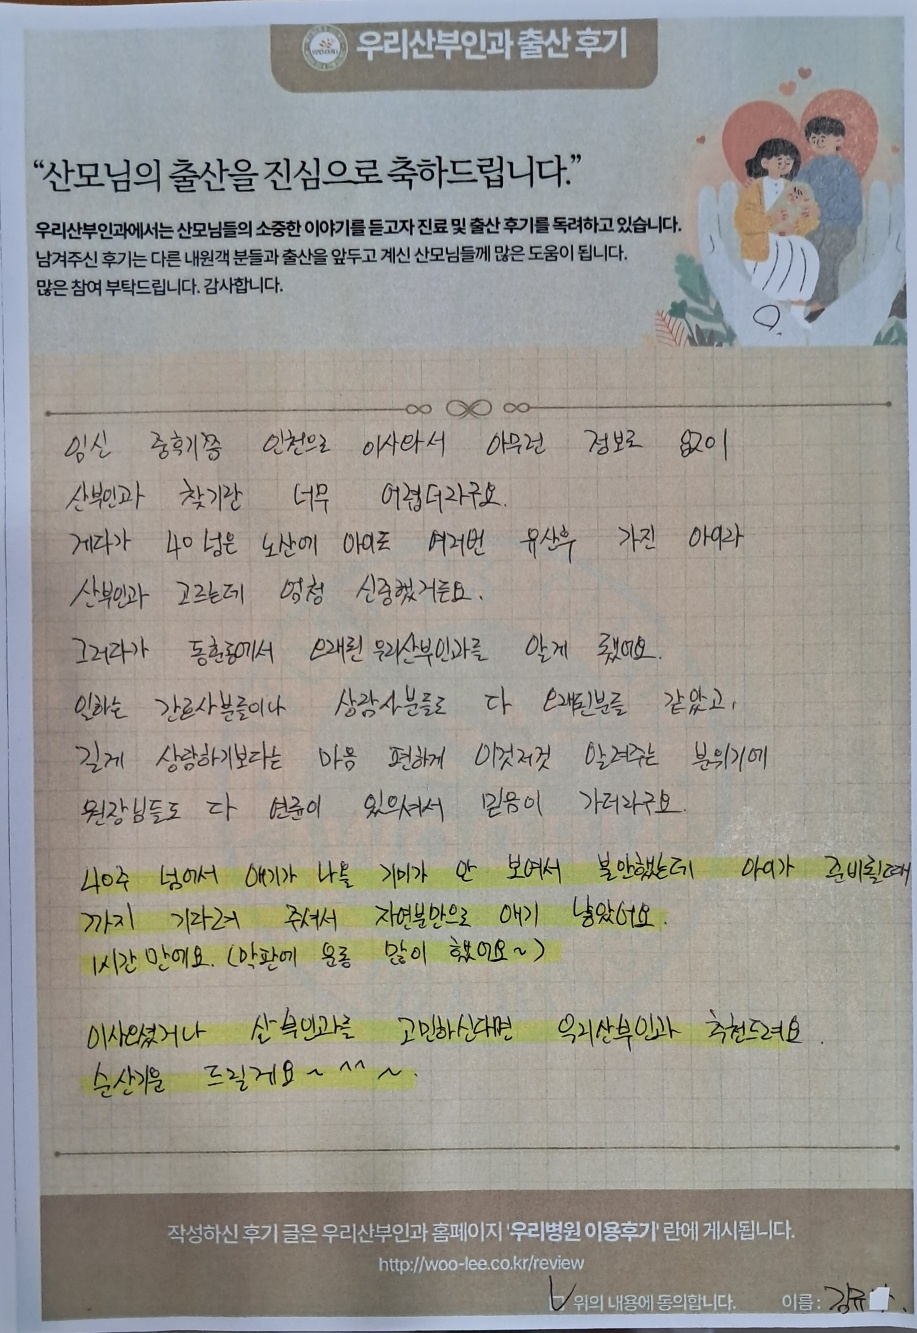 WOORI
우리산부인과 출산 후기
“산모님의 출산을 진심으로 축하드립니다.”
우리산부인과에서는 산모님들의 소중한 이야기를 듣고자 진료 및 출산 후기를 독려하고 있습니다.
남겨주신 후기는 다른 내원객 분들과 출산을 앞두고 계신 산모님들께 많은 도움이 됩니다.
많은 참여 부탁드립니다. 감사합니다.
임신 중후기쯤 인천으로 이사와서 아무런 정보도 없이
산부인과 찾기란 너무 어렵더라구요.
게다가 40 넘은 노산에 아이도 여러번 유산후 가진 아이라
산부인과 고르는데 엄청 신중했거든요.
그러다가 동춘동에서 오래된 우리산부인과를 알게 됐어요.
일하는 간호사분들이나 상담사분들도 다 오래된분들 같았고,
길게 상담하기보다는 마음 편하게 이것저것 알려주는 분위기에
원장님들도 다 연륜이 있으셔서 믿음이 가더라구요.
40주 넘어서 애기가 나올 기미가 안 보여서 불안했는데 아이가 준비될때
까지 기다려 주셔서 자연분만으로 애기 낳았어요.
1시간 만에요. (막판에 운동 많이 했어요~)
이사오셨거나 산부인과를 고민하신다면 우리산부인과 추천드려요.
순산기운 드릴게요~ ^^ ~.
작성하신 후기 글은 우리산부인과 홈페이지 '우리병원 이용후기' 란에 게시됩니다.
http://woo-lee.co.kr/review
위의 내용에 동의합니다. 이름 : 김유